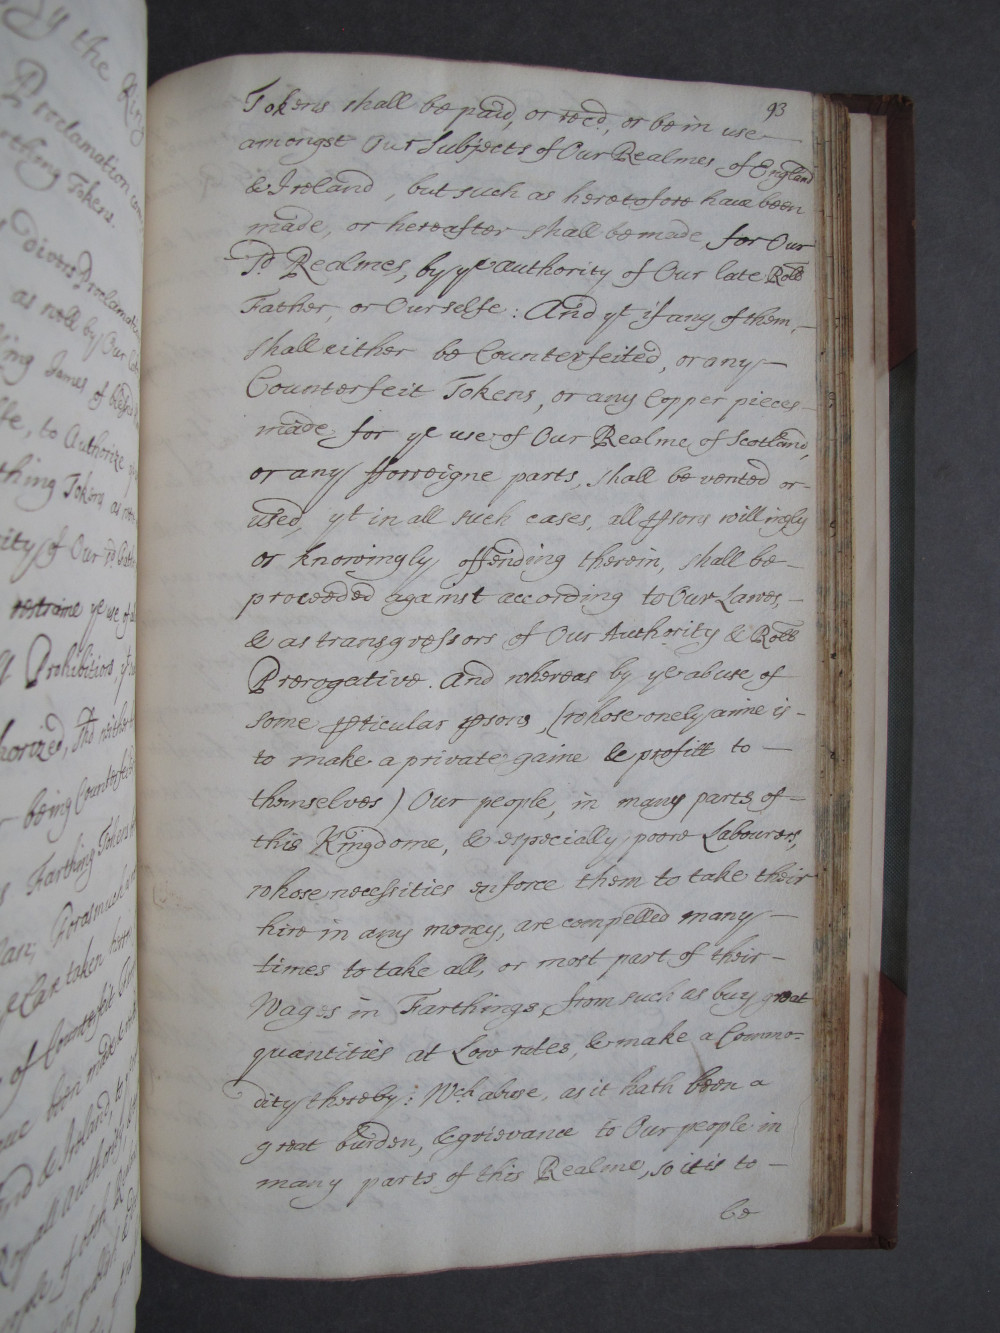 93
Tokens shall be paid, or recd, or be in use
amongst Our Subjects of Our Realmes of England
& Ireland, but such as heretofore have been
made, or hereafter shall be made for Our
sd Realmes, by ye authority of Our late Roll
Father, or Ourselfe: And yt if any of them,
shall either be Counterfeited, or any
Counterfeit Tokens, or any Copper pieces
made for ye use of Our Realme of Scotland,
or any fforreigne parts, shall be vented or
used, yt in all such cases, all psons willingly
or knowingly offending therein, shall be
proceeded against according to Our Lawes,
& as transgressors of Our Authority & Roll
Prerogative. And whereas by ye abuse of
some pticular psons, (whose onely aime is
to make a private gaine & profitt to
themselves) Our people, in many parts of
this Kingdome, & especially poore Labourers,
whose necessities enforce them to take their
hire in any money, are compelled many
times to take all, or most part of their
Wages in Farthings, from such as buy great
quantities at Low rates, & make a Commo-
dity thereby: Wch abuse, as it hath been a
great burden, & grievance to Our people in
many parts of this Realme, so it is to
be
by the King
Proclamation
Farthing Tokens.
divers Proclamations
as well by Our
King James of
to Authorize
Farthing Tokens
of Our
restraine ye use of
Prohibition yt
being Counterfeited
Farthing Tokens
Forasmuch
taken
of Counterfeit
been made
& Ireland, to
Royall Authority
people of both